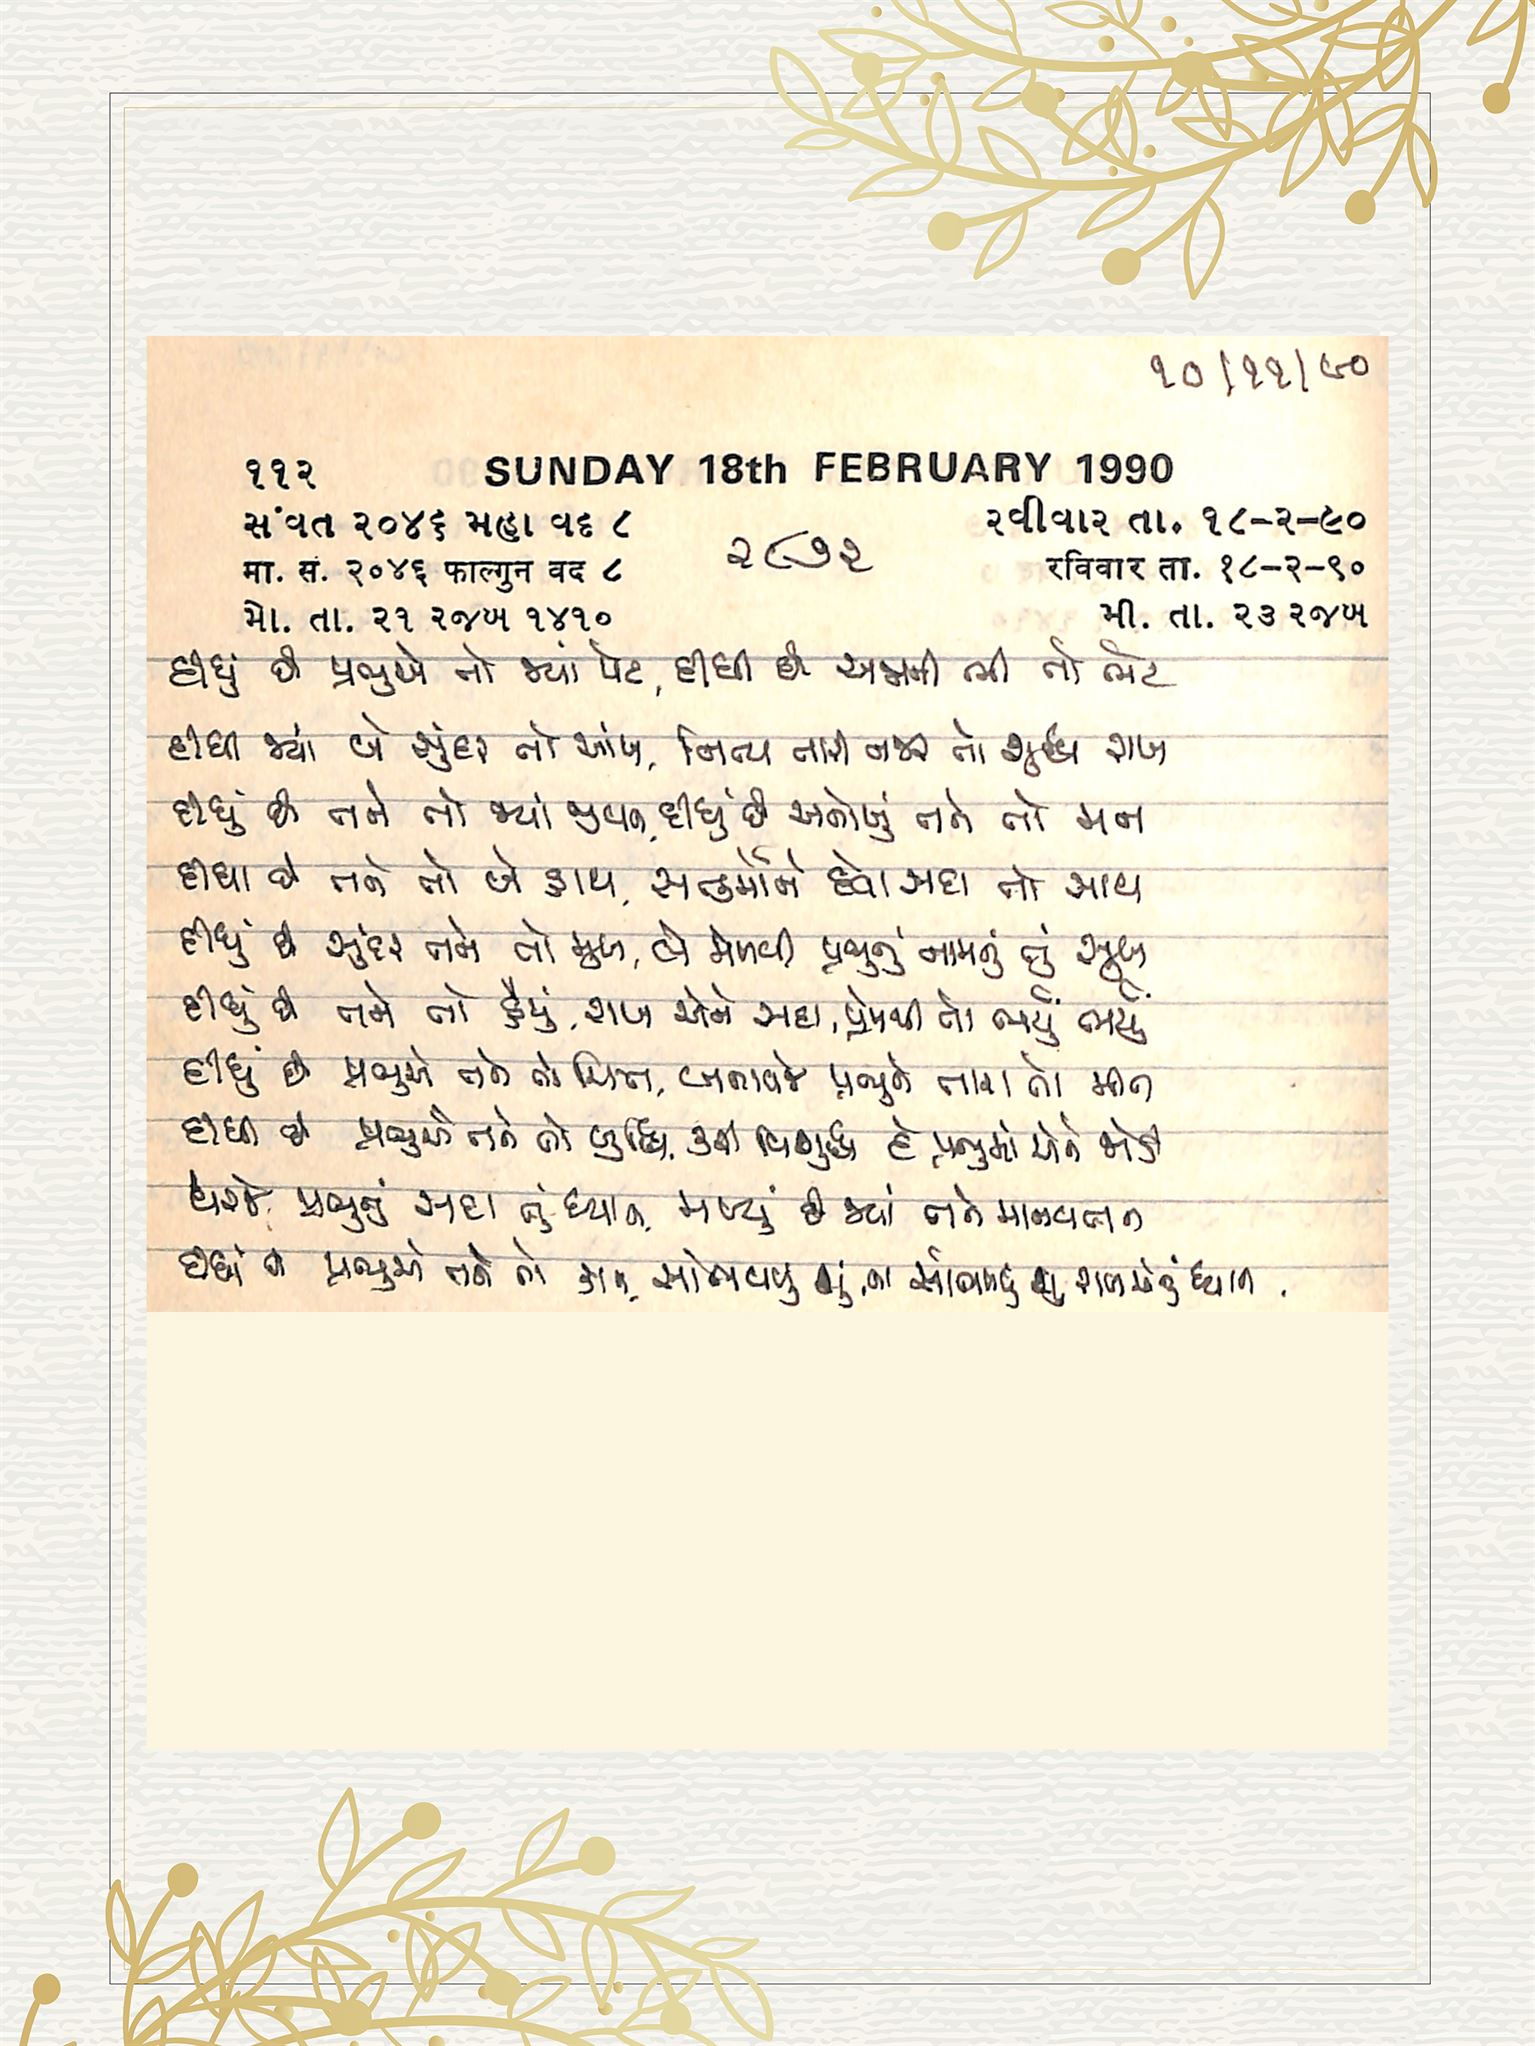 ૧૦/૧૧/૯૦
૧૧૨ SUNDAY 18th FEBRUARY 1990
સંવત ૨૦૪૬ મહા વદ ૮ રવીવાર તા. ૧૮-૨-૯૦
मा. सं. २०४६ फाल्गुन वद ८ रविवार ता. १८-२-९०
મો. તા. ૨૧ રજબ ૧૪૧૦ મી. તા. ૨૩ રજબ
૨૮૭૨
દીધું છે પ્રભુએ તો જ્યાં પેટ, દીધી છે અન્નની ભી તો ભેટ
દીધી જ્યાં બે સુંદર તો આંખ, નિત્ય તારી નજર તો શુદ્ધ રાખ
દીધું છે તને તો જ્યાં જીવન, દીધું છે અનોખું તને તો મન
દીધા છે તને તો બે હાથ, સત્કર્મોને દેવા સદા તો સાથ
દીધું છે સુંદર તને તો મુખ, લે મેળવી પ્રભુનું નામનું તું સુખ
દીધું છે તને તો હૈયું, રાખ એને સદા, પ્રેમથી તો ભર્યું ભર્યું
દીધું છે પ્રભુએ તને તો ચિત્ત, બનાવજે પ્રભુને તારા તો મીત
દીધી છે પ્રભુએ તને તો બુદ્ધિ, કરી વિશુદ્ધ દે પ્રભુમાં એને જોડી
ધરજે પ્રભુનું સદા તું ધ્યાન, મળ્યું છે જ્યાં તને માનવતન
દીધાં છે પ્રભુએ તને તો કાન, સાંભળવુ શું, ના સાંભળવુ શું રાખ એનું ધ્યાન.